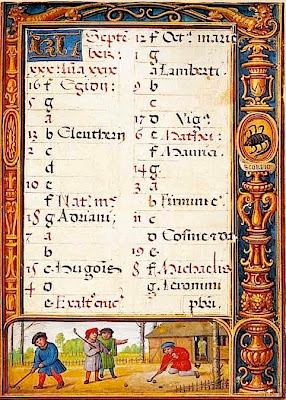 KL Septē
ber.
xxx. luā xxix
16 f Egidii.
5 g
a
13 b Eleutherii
2 c
d
10 e
f Nat. mē
18 g Adriani.
7 a
b
15 c
4 d
e Exalt. cruc
12 f Oct. marie
1 g
a Lamberti.
9 b
c
17 d Vig.
6 e Mathei.
f Maurici.
14 g
3 a
b Firmini
11 c
d Cosme & da
19 e
8 f Michaelis
g Jeronimi
pbri.
SCORPIO